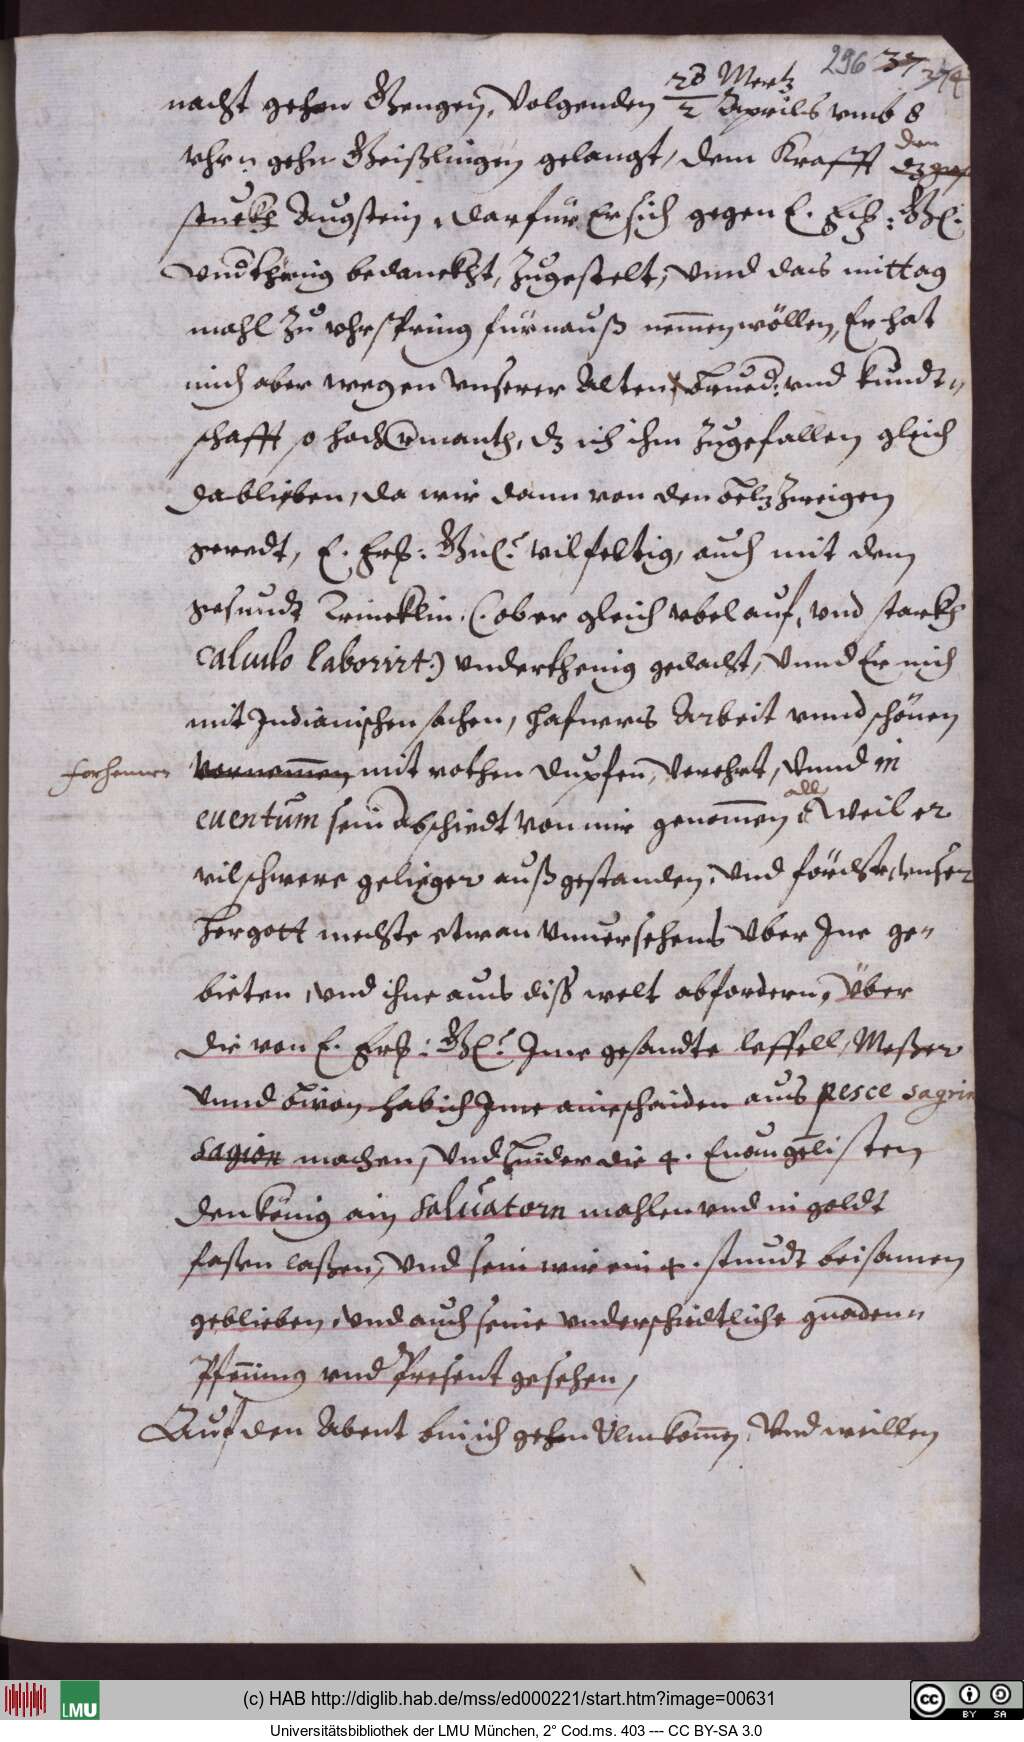 296 37 374
nacht gehen Gengen, Volgenden 28 Mertz / 2 Aprilis vmb 8
vhrn gehn Geißlingen gelangt, dem Krafft den
stuckh Augstein, darfür Er sich gegen E. Frl: Gl:
Vndthenig bedanckht, zugestelt, Vnnd das mittag
mahl zu vhrspring fürnauß nemmen wöllen, Er hat
mich aber wegen vnserer Alten brued: vnd kundt-
schafft so hoch ermanth, dz ich ihm zugefallen gleich
da blieben, da wir dann von den beltz zweigen
geredt, E. Frl: Gnl: vilfeltig, auch mit dem
gesundt Trincklin (: ob er gleich vbel auf, vnd starkh
calculo laborirt:) vnderthenig gedacht, Vnnd Er mich
mit Indianischen sachen, hafners Arbeit vnnd schönen
forhennen vornemmen mit rothen dupfen, Verehrt, Vnnd in
euentum sein abschiedt von mir genommen all weil er
vil schwere gelieger außgestanden, Vnd förcht, vnser
hergott mechte etwan Vnuersehens Vber Ine ge-
bieten, vnd ihne aus diss welt abfordern, Über
die von E. Frl: Gl: Ime gesandte leffell, Meßer
Vnnd biron hab ich Ime ain schaiden aus pesce sagrin
sagion machen, Vnd hinder die 4. Euangelisten
den König ain Saluatorn mahlen vnd in goldt
faßen laßen, Vnd sein wir ein 4. stundt beisamen
geblieben, Vnd auch seine vnderschidtliche gnaden-
Pfening vnd Present gesehen,
Auf den Abent bin ich gehen Vlm kommen, Vnd weillen
(c) HAB http://diglib.hab.de/mss/ed000221/start.htm?image=00631
LMU
cc BY SA
Universitätsbibliothek der LMU München, 2° Cod.ms. 403 --- CC BY-SA 3.0